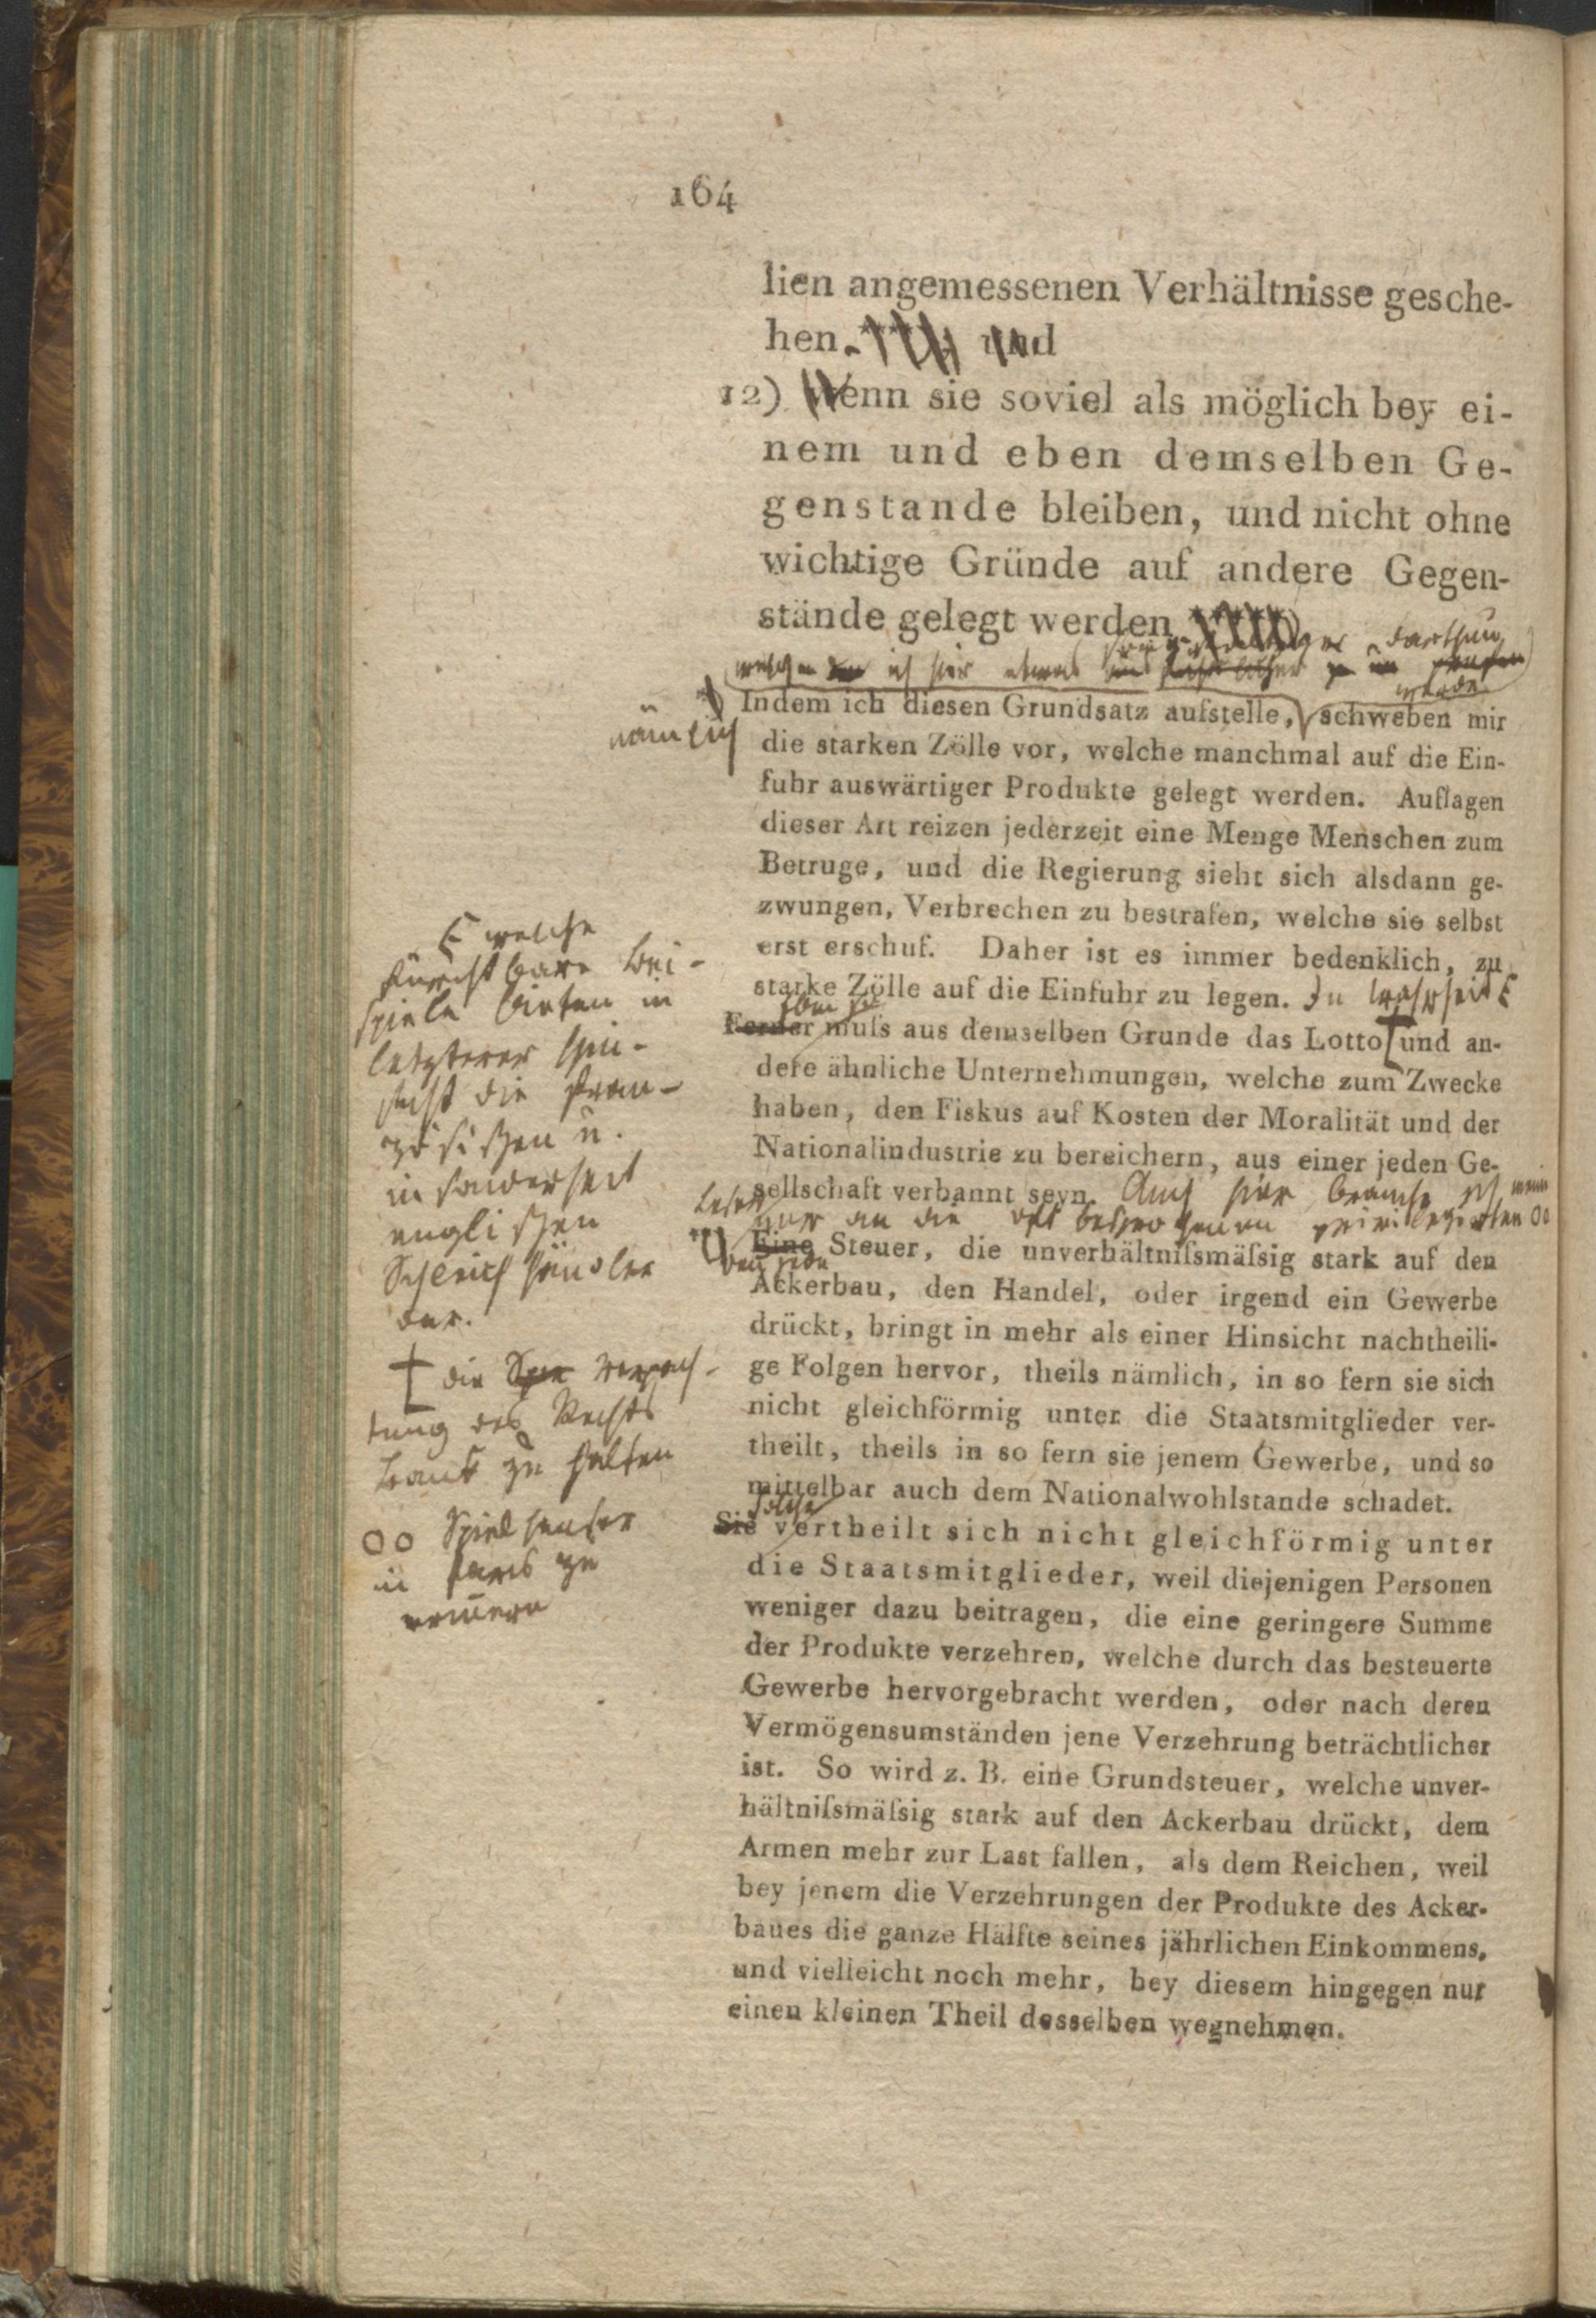 164
lien angemessenen Verhältnisse gesche-
hen. und
12) Wenn sie soviel als möglich bey ei-
nem und eben demselben Ge-
genstande bleiben, und nicht ohne
wichtige Gründe auf andere Gegen-
stände gelegt werden
darthun
welchen ich hier etwas
werde
*) Indem ich diesen Grundsatz aufstelle, schweben mir
nämlich
die starken Zölle vor, welche manchmal auf die Ein-
fuhr auswärtiger Produkte gelegt werden. Auflagen
dieser Art reizen jederzeit eine Menge Menschen zum
Betruge, und die Regierung sieht sich alsdann ge-
zwungen, Verbrechen zu bestrafen, welche sie selbst
erst erschuf. Daher ist es immer bedenklich, zu
starke Zölle auf die Einfuhr zu legen. In Wahrheit
Ferner muſs aus demselben Grunde das Lotto und an-
dere ähnliche Unternehmungen, welche zum Zwecke
haben, den Fiskus auf Kosten der Moralität und der
Nationalindustrie zu bereichern, aus einer jeden Ge-
sellschaft verbannt seyn. Auch hier brauche ich mein
Leser nur an die besprochenen privilegirten oo
**) Eine Steuer, die unverhältniſsmäſsig stark auf den
Ackerbau, den Handel, oder irgend ein Gewerbe
drückt, bringt in mehr als einer Hinsicht nachtheili-
ge Folgen hervor, theils nämlich, in so fern sie sich
nicht gleichförmig unter die Staatsmitglieder ver-
theilt, theils in so fern sie jenem Gewerbe, und so
mittelbar auch dem Nationalwohlstande schadet.
solche
Sie vertheilt sich nicht gleichförmig unter
die Staatsmitglieder, weil diejenigen Personen
weniger dazu beitragen, die eine geringere Summe
der Produkte verzehren, welche durch das besteuerte
Gewerbe hervorgebracht werden, oder nach deren
Vermögensumständen jene Verzehrung beträchtlicher
ist. So wird z. B. eine Grundsteuer, welche unver-
hältniſsmäſsig stark auf den Ackerbau drückt, dem
Armen mehr zur Last fallen, als dem Reichen, weil
bey jenem die Verzehrungen der Produkte des Acker-
baues die ganze Hälfte seines jährlichen Einkommens,
und vielleicht noch mehr, bey diesem hingegen nur
einen kleinen Theil desselben wegnehmen.
welche
furchtbare Bei-
spiele bieten in
letzterer Hin-
sicht die fran-
zösischen u.
insonderheit
englischen
Schleichhändler
dar.
die Verpach-
tung des Rechts
Bank zu halten
oo Spielhäuser
in Paris zu
erinnern